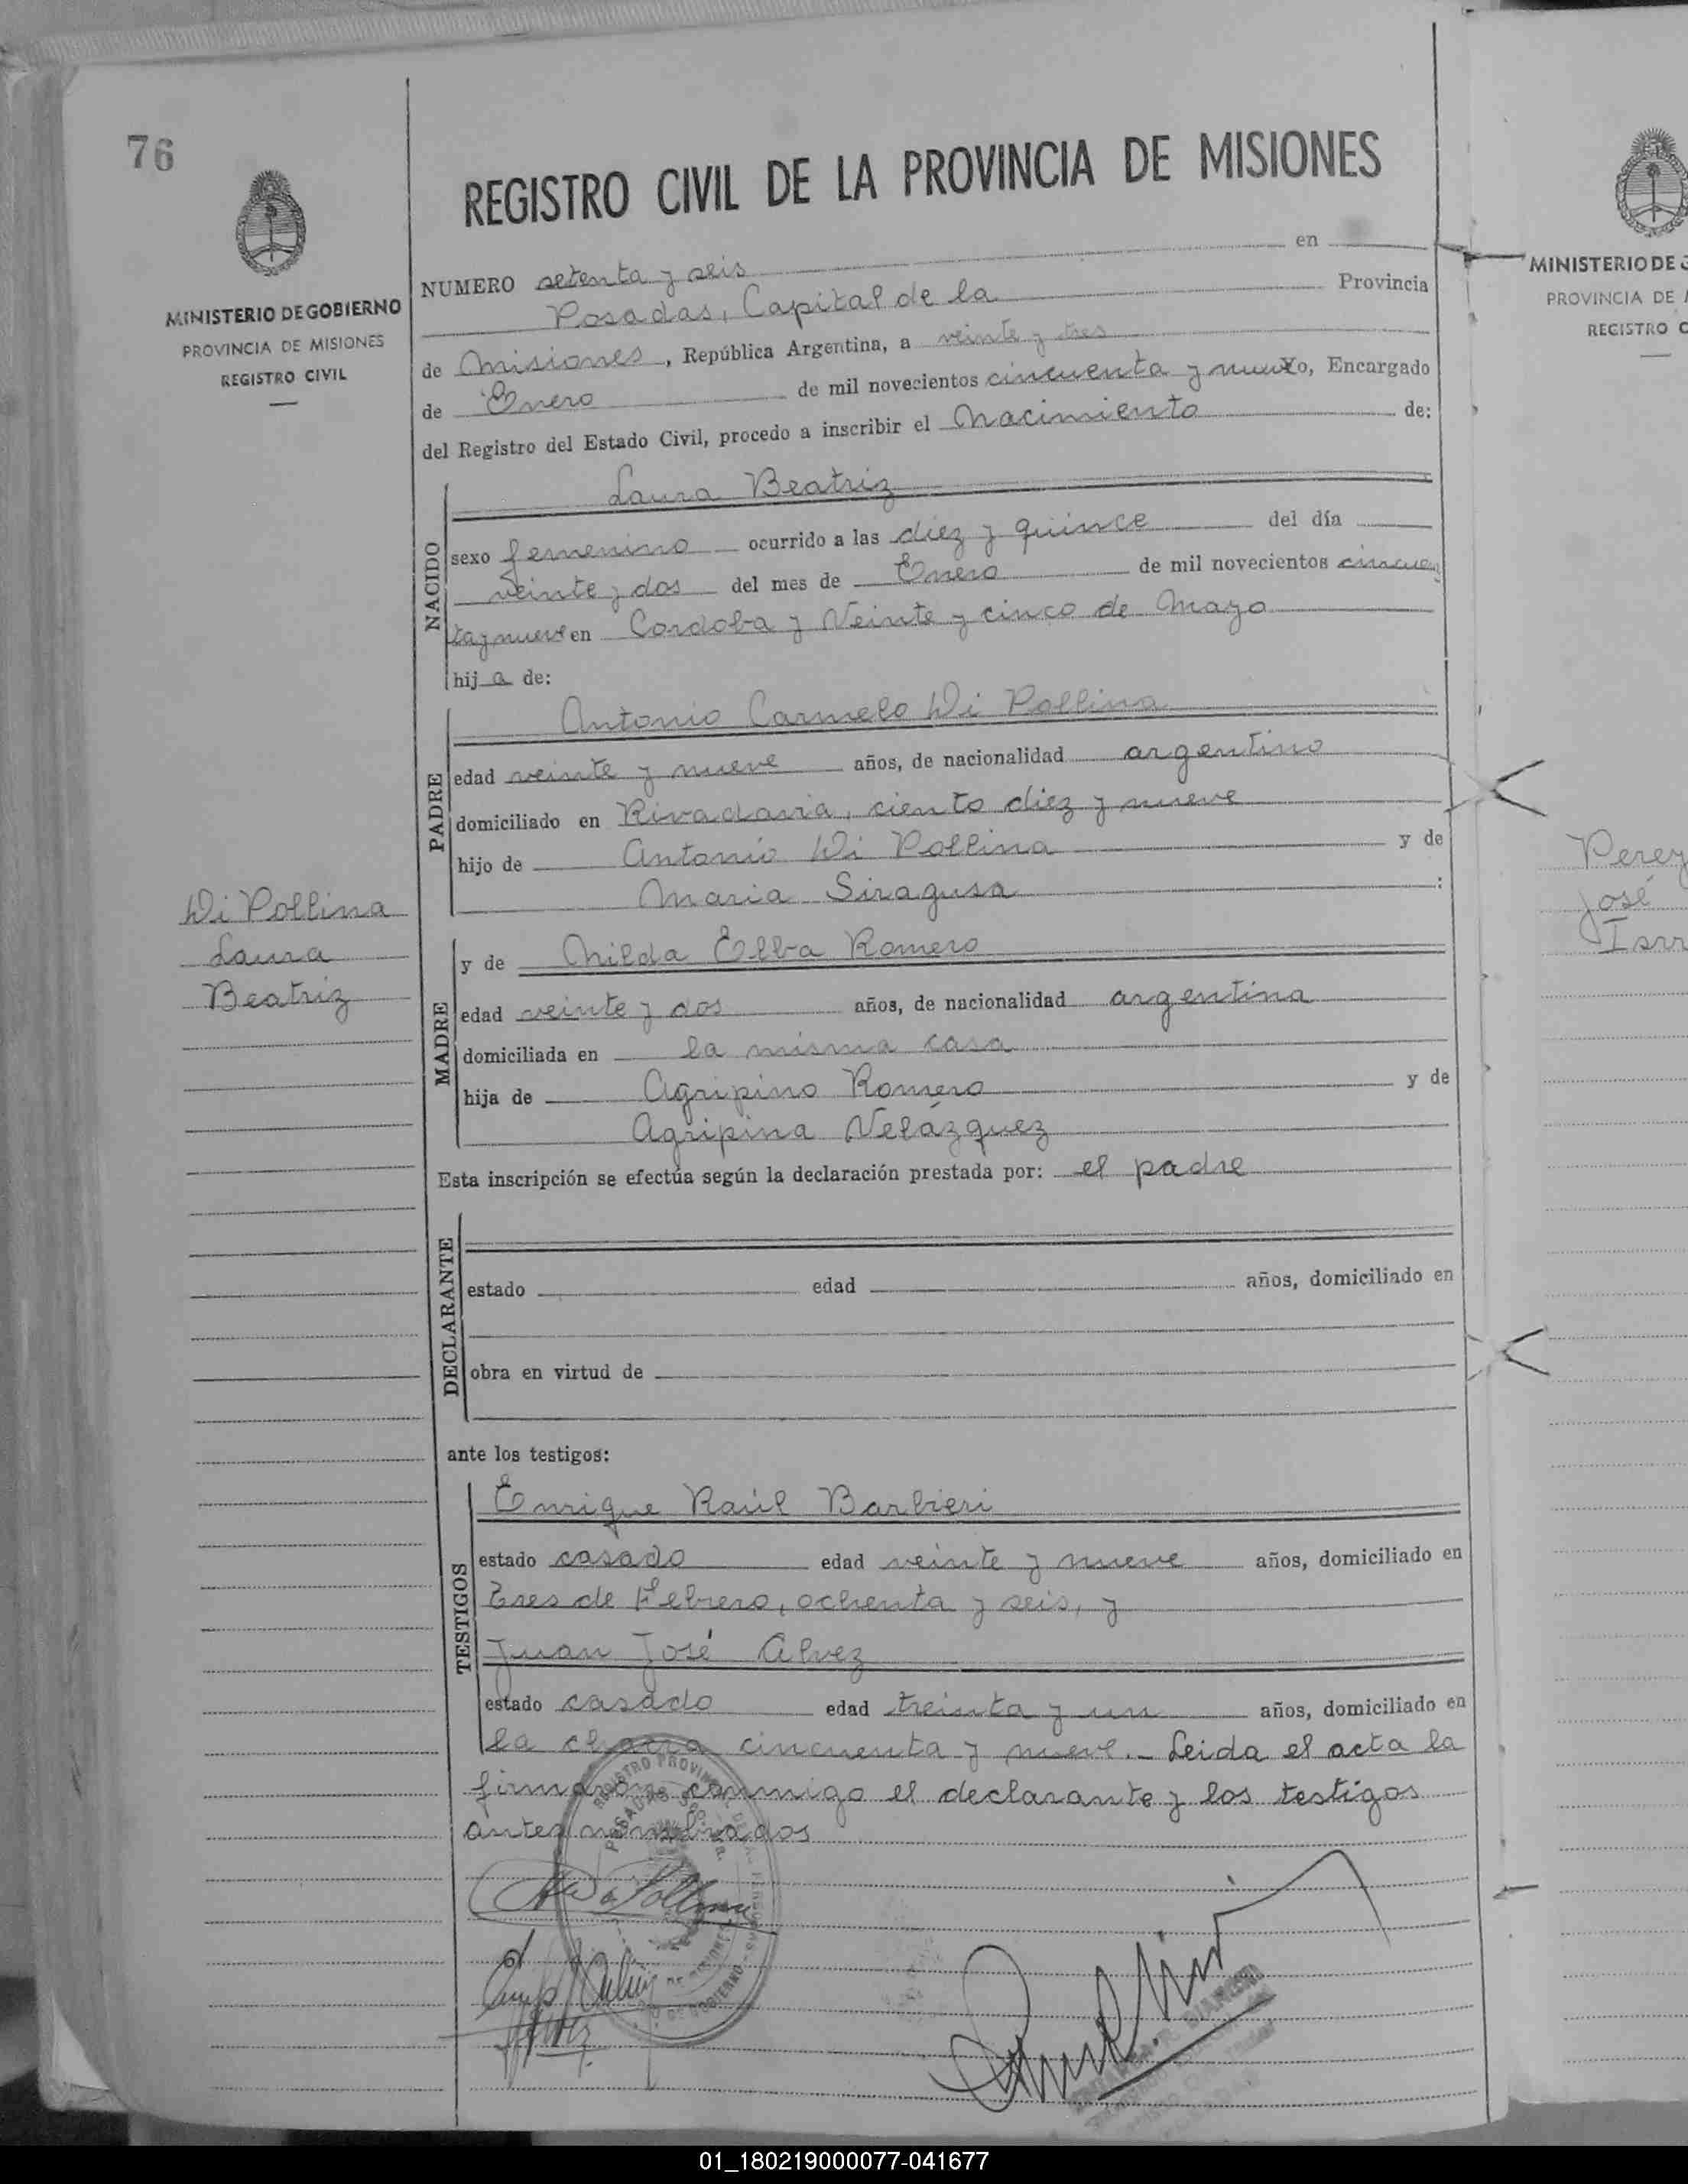 76
MINISTERIO DE GOBIERNO
PROVINCIA DE MISIONES
REGISTRO CIVIL
REGISTRO CIVIL DE LA PROVINCIA DE MISIONES
NUMERO setenta y seis en
Posadas, Capital de la Provincia
de Misiones, República Argentina, a veinte y tres
de Enero de mil novecientos cincuenta y nueve Yo, Encargado
del Registro del Estado Civil, procedo a inscribir el Nacimiento de:
NACIDO
Laura Beatriz
sexo femenino ocurrido a las diez y quince del día
veinte y dos del mes de Enero de mil novecientos cincuen
ta y nueve en Cordoba y Veinte y cinco de Mayo
hija de:
PADRE
Antonio Carmelo Di Pollina
edad veinte y nueve años, de nacionalidad argentino
domiciliado en Rivadavia, ciento diez y nueve
hijo de Antonio Di Pollina y de
Maria Siragusa :
Di Pollina
Laura
Beatriz
MADRE
y de Nilda Elba Romero
edad veinte y dos años, de nacionalidad argentina
domiciliada en la misma casa
hija de Agripino Romero y de
Agripina Velázquez
Esta inscripción se efectúa según la declaración prestada por: el padre
DECLARANTE
estado edad años, domiciliado en
obra en virtud de
ante los testigos:
TESTIGOS
Enrique Raúl Barbieri
estado casado edad veinte y nueve años, domiciliado en
Tres de Febrero, ochenta y seis, y
Juan José Alvez
estado casado edad treinta y un años, domiciliado en
la chacra cincuenta y nueve.- Leida el acta la
firmaron conmigo el declarante y los testigos
antes nombrados
MINISTERIO DE
PROVINCIA DE
REGISTRO
José
01_180219000077-041677